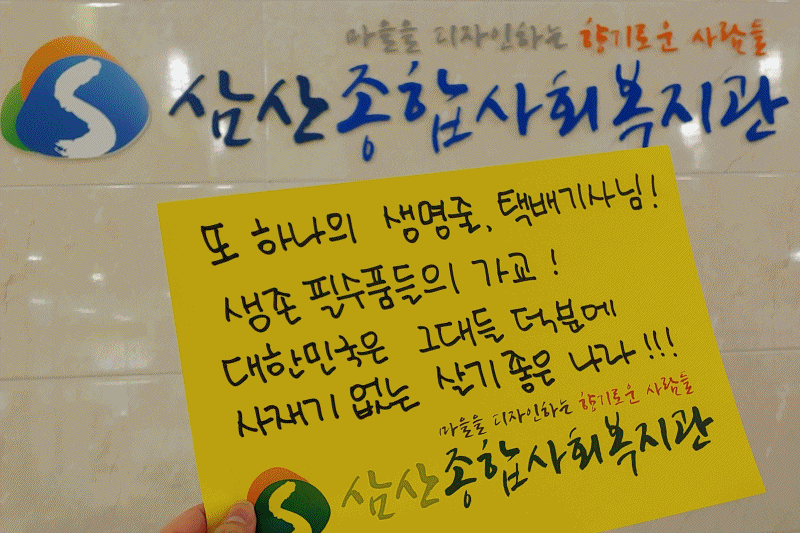 마을을 디자인하는 향기로운 사람들
삼산종합사회복지관
또 하나의 생명줄, 택배기사님!
생존 필수품들의 가교!
대한민국은 그대들 덕분에
사재기 없는 살기 좋은 나라!!!
마을을 디자인하는 향기로운 사람들
삼산종합사회복지관